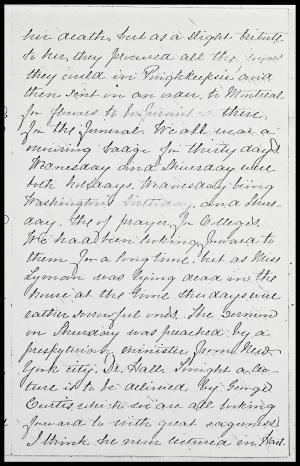 her death, but as a slight tribute
to her, they procured all the
they could in Poughkeepsie and
then sent in an order to Montreal
for flowers to be furnished there,
for the funeral. We all wear a
mourning badge for thirty days.
Wednesday and Thursday were
both holidays. Wednesday being
Washington birthday, and Thurs-
day. the of prayer for Colleges.
We had been looking forward to
them for a long time, but as Miss
Lyman was lying dead in the
house at the time the days were
rather sorrowful ones. The sermon
on Thursday was preached by a
presbyterian minister from New
York city. Dr. Hall. Tonight a lec-
ture is to be delivered by George
Curtis which we are all looking
forward to with great eagerness.
I think he never lectured in Hart.